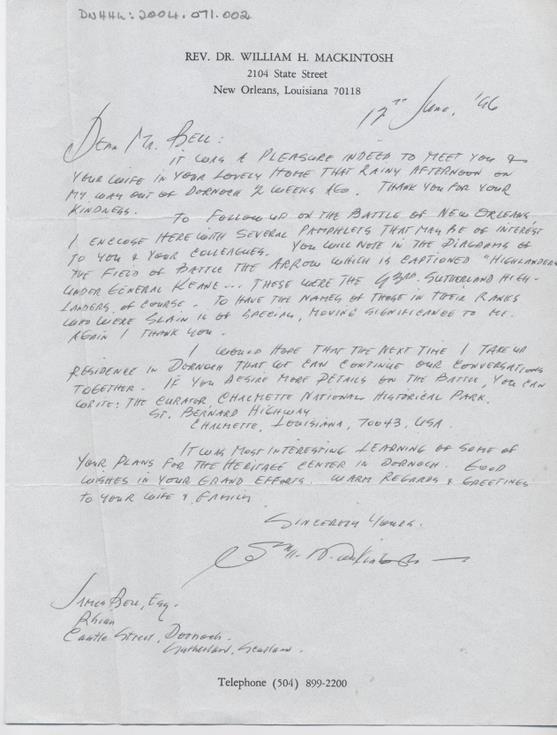 DNHHL: 2004.071.002
REV. DR. WILLIAM H. MACKINTOSH
2104 State Street
New Orleans, Louisiana 70118
12TH June, '96
Dear Mr. Bell:
It was a pleasure indeed to meet you &
your wife in your lovely home that rainy afternoon on
my way out of Dornoch 2 weeks ago. Thank you for your
kindness.
To follow up on the Battle of New Orleans,
I enclose herewith several pamphlets that may be of interest
to you & your colleagues. You will note in the diagrams of
the field of battle the arrow which is captioned "Highlanders
under General Keane... These were the 93rd Sutherland High-
landers, of course. To have the names of those in their ranks
who were slain is of special, moving significance to me.
Again I thank you.
I would hope that the next time I take up
residence in Dornoch that we can continue our conversations
together. If you desire more details on the battle, you can
write: The Curator, Chalmette National Historical Park.
St. Bernard Highway
Chalmette, Louisiana, 70043, USA.
It was most interesting learning of some of
your plans for the Heritage Center in Dornoch. Good
wishes in your grand efforts. Warm regards & greetings
to your wife & family
Sincerely yours.
Wm. H. Mackintosh
James Bell, Esq.
Rhian
Castle Street, Dornoch.
Sutherland, Scotland.
Telephone (504) 899-2200